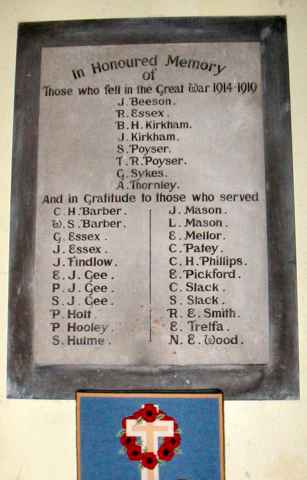 In Honoured Memory
of
Those who fell in the Great War 1914-1919
J. Beeson.
R. Essex.
B. H. Kirkham.
J. Kirkham.
S. Poyser.
T. R. Poyser.
G. Sykes.
A. Thornley.
And in Gratitude to those who served
C. H. Barber.
W. S. Barber.
G. Essex.
J. Essex.
J. Findlow.
E. J. Gee.
P. J. Gee.
S. J. Gee.
P. Holt.
P. Hooley.
S. Hulme.
J. Mason.
L. Mason.
E. Mellor.
C. Patey.
C. H. Phillips.
E. Pickford.
C. Slack.
S. Slack.
R. E. Smith.
E. Treffa.
N. E. Wood.